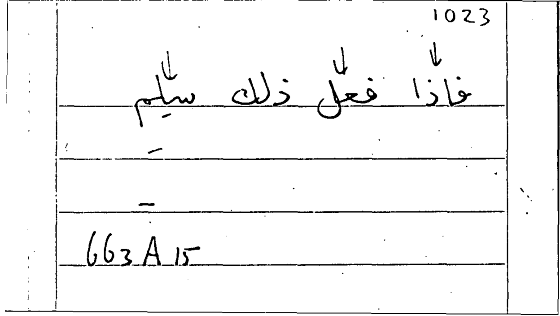 1023
فاذا فعل ذلك سيلم
–
–
663 A 15